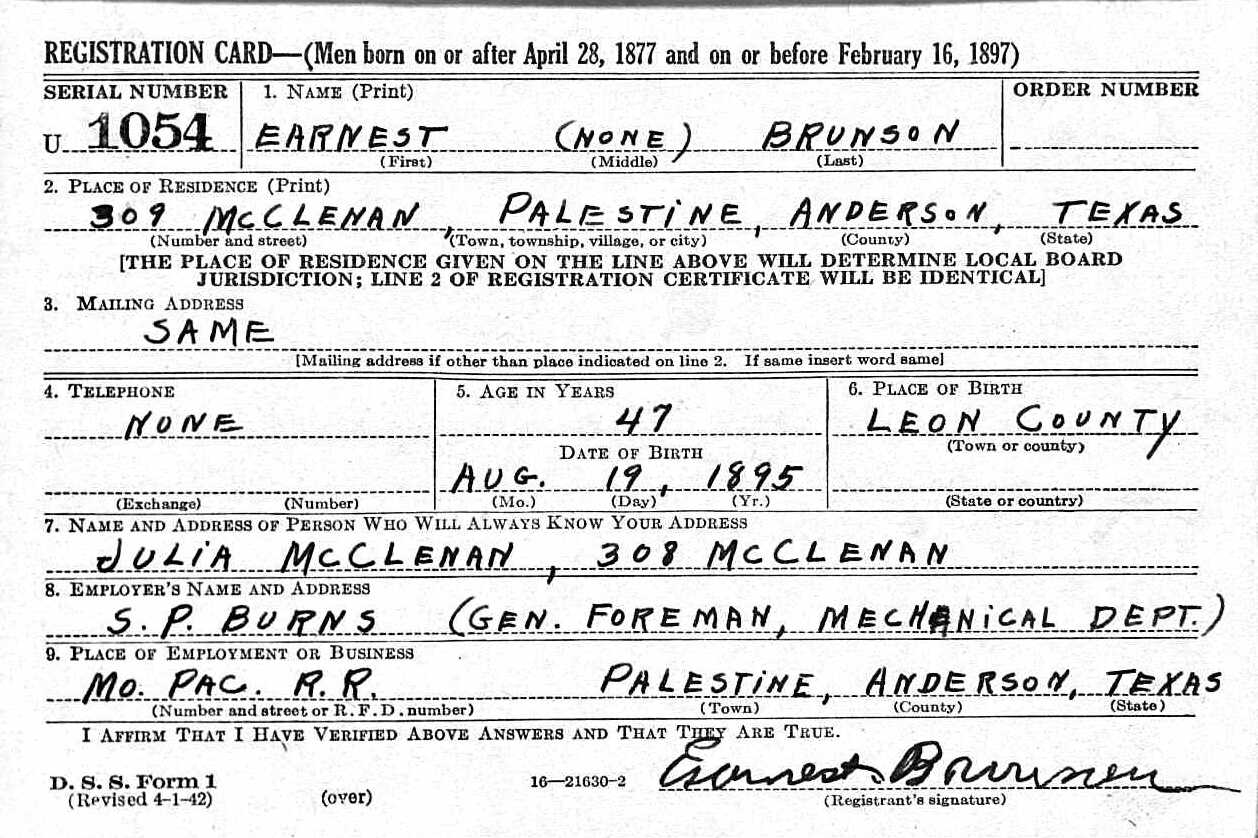 REGISTRATION CARD—(Men born on or after April 28, 1877 and on or before February 16, 1897)
SERIAL NUMBER 1. NAME (Print) ORDER NUMBER
U 1054 EARNEST (NONE) BRUNSON
(First) (Middle) (Last)
2. PLACE OF RESIDENCE (Print)
309 McCLENAN, PALESTINE, ANDERSON, TEXAS
(Number and street) (Town, township, village, or city) (County) (State)
[THE PLACE OF RESIDENCE GIVEN ON THE LINE ABOVE WILL DETERMINE LOCAL BOARD
JURISDICTION; LINE 2 OF REGISTRATION CERTIFICATE WILL BE IDENTICAL]
3. MAILING ADDRESS
SAME
[Mailing address if other than place indicated on line 2. If same insert word same]
4. TELEPHONE 5. AGE IN YEARS 6. PLACE OF BIRTH
NONE 47 LEON COUNTY
(Town or county)
DATE OF BIRTH
AUG. 19, 1895
(Exchange) (Number) (Mo.) (Day) (Yr.) (State or country)
7. NAME AND ADDRESS OF PERSON WHO WILL ALWAYS KNOW YOUR ADDRESS
JULIA McCLENAN, 308 McCLENAN
8. EMPLOYER'S NAME AND ADDRESS
S. P. BURNS (GEN. FOREMAN, MECHANICAL DEPT.)
9. PLACE OF EMPLOYMENT OR BUSINESS
MO. PAC. R.R. PALESTINE, ANDERSON, TEXAS
(Number and street or R. F. D. number) (Town) (County) (State)
I AFFIRM THAT I HAVE VERIFIED ABOVE ANSWERS AND THAT THEY ARE TRUE.
D. S. S. Form 1 16—21630-2 Earnest Brunson
(Revised 4-1-42) (over) (Registrant's signature)